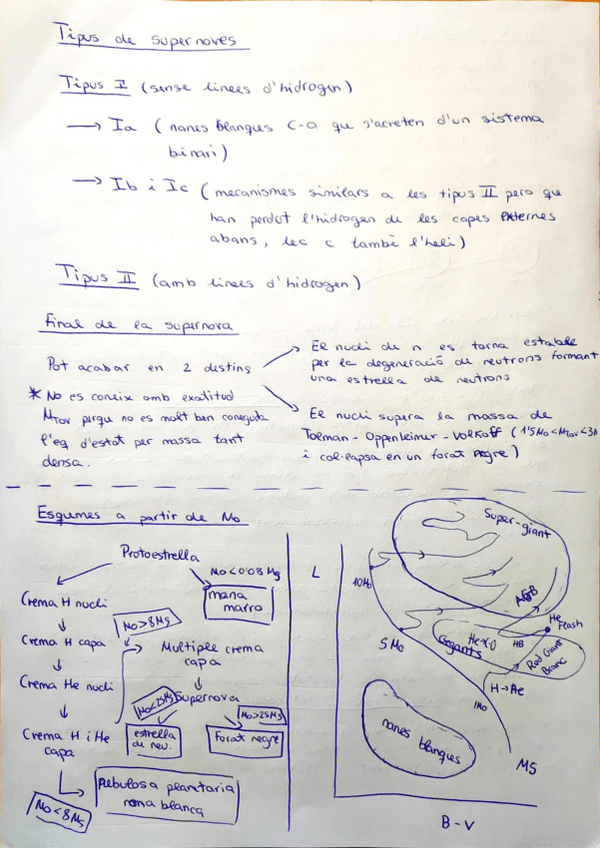 Tipus de supernoves
Tipus I (sense línees d'hidrogen)
→ Ia (nanes blanques C-O que s'acreten d'un sistema
binari)
→ Ib i Ic (mecanismes similars a les tipus II pero que
han perdut l'hidrogen de les capes externes
abans, les c també l'heli)
Tipus II (amb línees d'hidrogen)
Final de la supernova
Pot acabar en 2 destins
El nucli de n es torna estable
per la degeneració de neutrons formant
una estrella de neutrons
El nucli supera la massa de
Tolman-Oppenheimer-Volkoff (1'5M₀<M_TOV<3M
i col·lapsa en un forat negre)
* No es coneix amb exatitud
M_TOV perque no es molt ben coneguda
l'eq d'estat per massa tant
densa.
Esquemes a partir de M₀
Protoestrella
M₀<0'08 Ms
nana
marro
Crema H nucli
Crema H capa
Crema He nucli
Crema H i He
capa
M₀<8Ms
Nebulosa planetaria
nana blanca
M₀>8Ms
Multiple crema
capa
Supernova
M₀<25Ms
estrella
de neu.
M₀>25Ms
Forat negre
L
Super-giant
10M₀
AGB
He
Flash
5M₀
He→C-O
HB
Gigants
Red Giant
Branc
H→He
1M₀
nanes blanques
MS
B-V